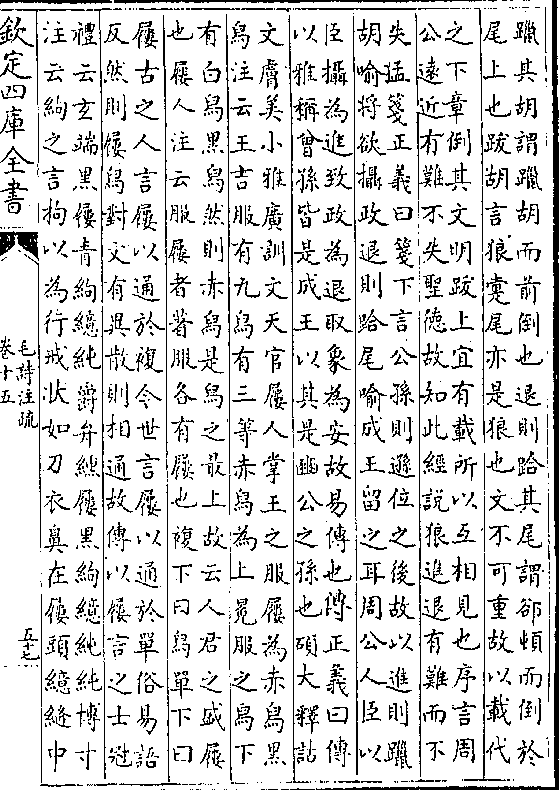 躐其胡謂躐胡而前倒也退則跲其尾謂郤頓而倒於
尾上也跋胡言狼疐尾亦是狼也文不可重故以載代
之下章倒其文明跋上宜有載所以互相見也序言周
公遠近有難不失聖德故知此經說狼進退有難而不
失猛箋正義曰箋下言公孫則遜位之後故以進則躐
胡喻將欲攝政退則跲尾喻成王留之耳周公人臣以
臣攝為進致政為退取象為安故易傳也傳正義曰傳
以雅稱曾孫皆是成王以其是豳公之孫也碩大釋詁
文膚美小雅廣訓文天官屨人掌王之服屨為赤舄黑
舄注云王吉服有九舄有三等赤舄為上冕服之舄下
有白舄黑舄然則赤舄是舄之最上故云人君之盛屨
也屨人注云服屨者著服各有屨也複下曰舄單下曰
屨古之人言屨以通於複今世言屨以通於單俗易語
反然則屨舄對文有異散則相通故傳以屨言之士冠
禮云玄端黑屨青絇繶純爵弁纁屨黑絇繶純純博寸
注云絇之言拘以為行戒狀如刀衣鼻在屨頭繶縫中
欽定四庫全書
毛詩注疏
卷十五
五十七